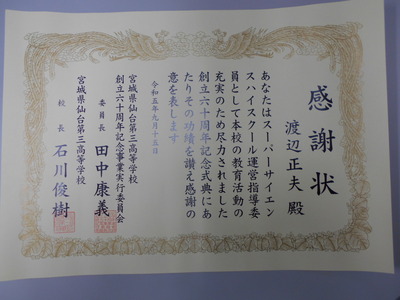 感謝状
渡辺正夫 殿
あなたはスーパーサイエン
スハイスクール運営指導委
員として本校の教育活動の
充実のため尽力されました
創立六十周年記念式典にあ
たりその功績を讃え感謝の
意を表します
令和五年九月十五日
宮城県仙台第三高等学校
創立六十周年記念事業実行委員会
委員長 田中康義
宮城県仙台第三高等学校
校長 石川俊樹